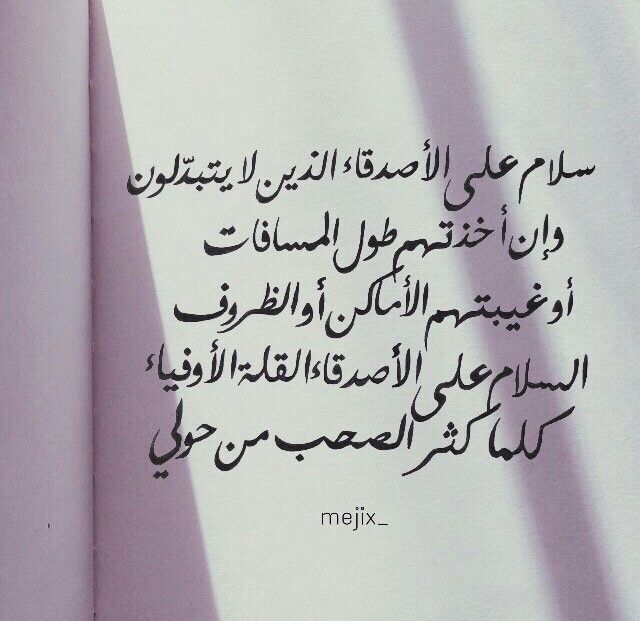 سلام على الأصدقاء الذين لا يتبدّلون
وإن أخذتهم طول المسافات
أو غيبتهم الأماكن أو الظروف
السلام على الأصدقاء القلة الأوفياء
كلما كثر الصحب من حولي
mejix_